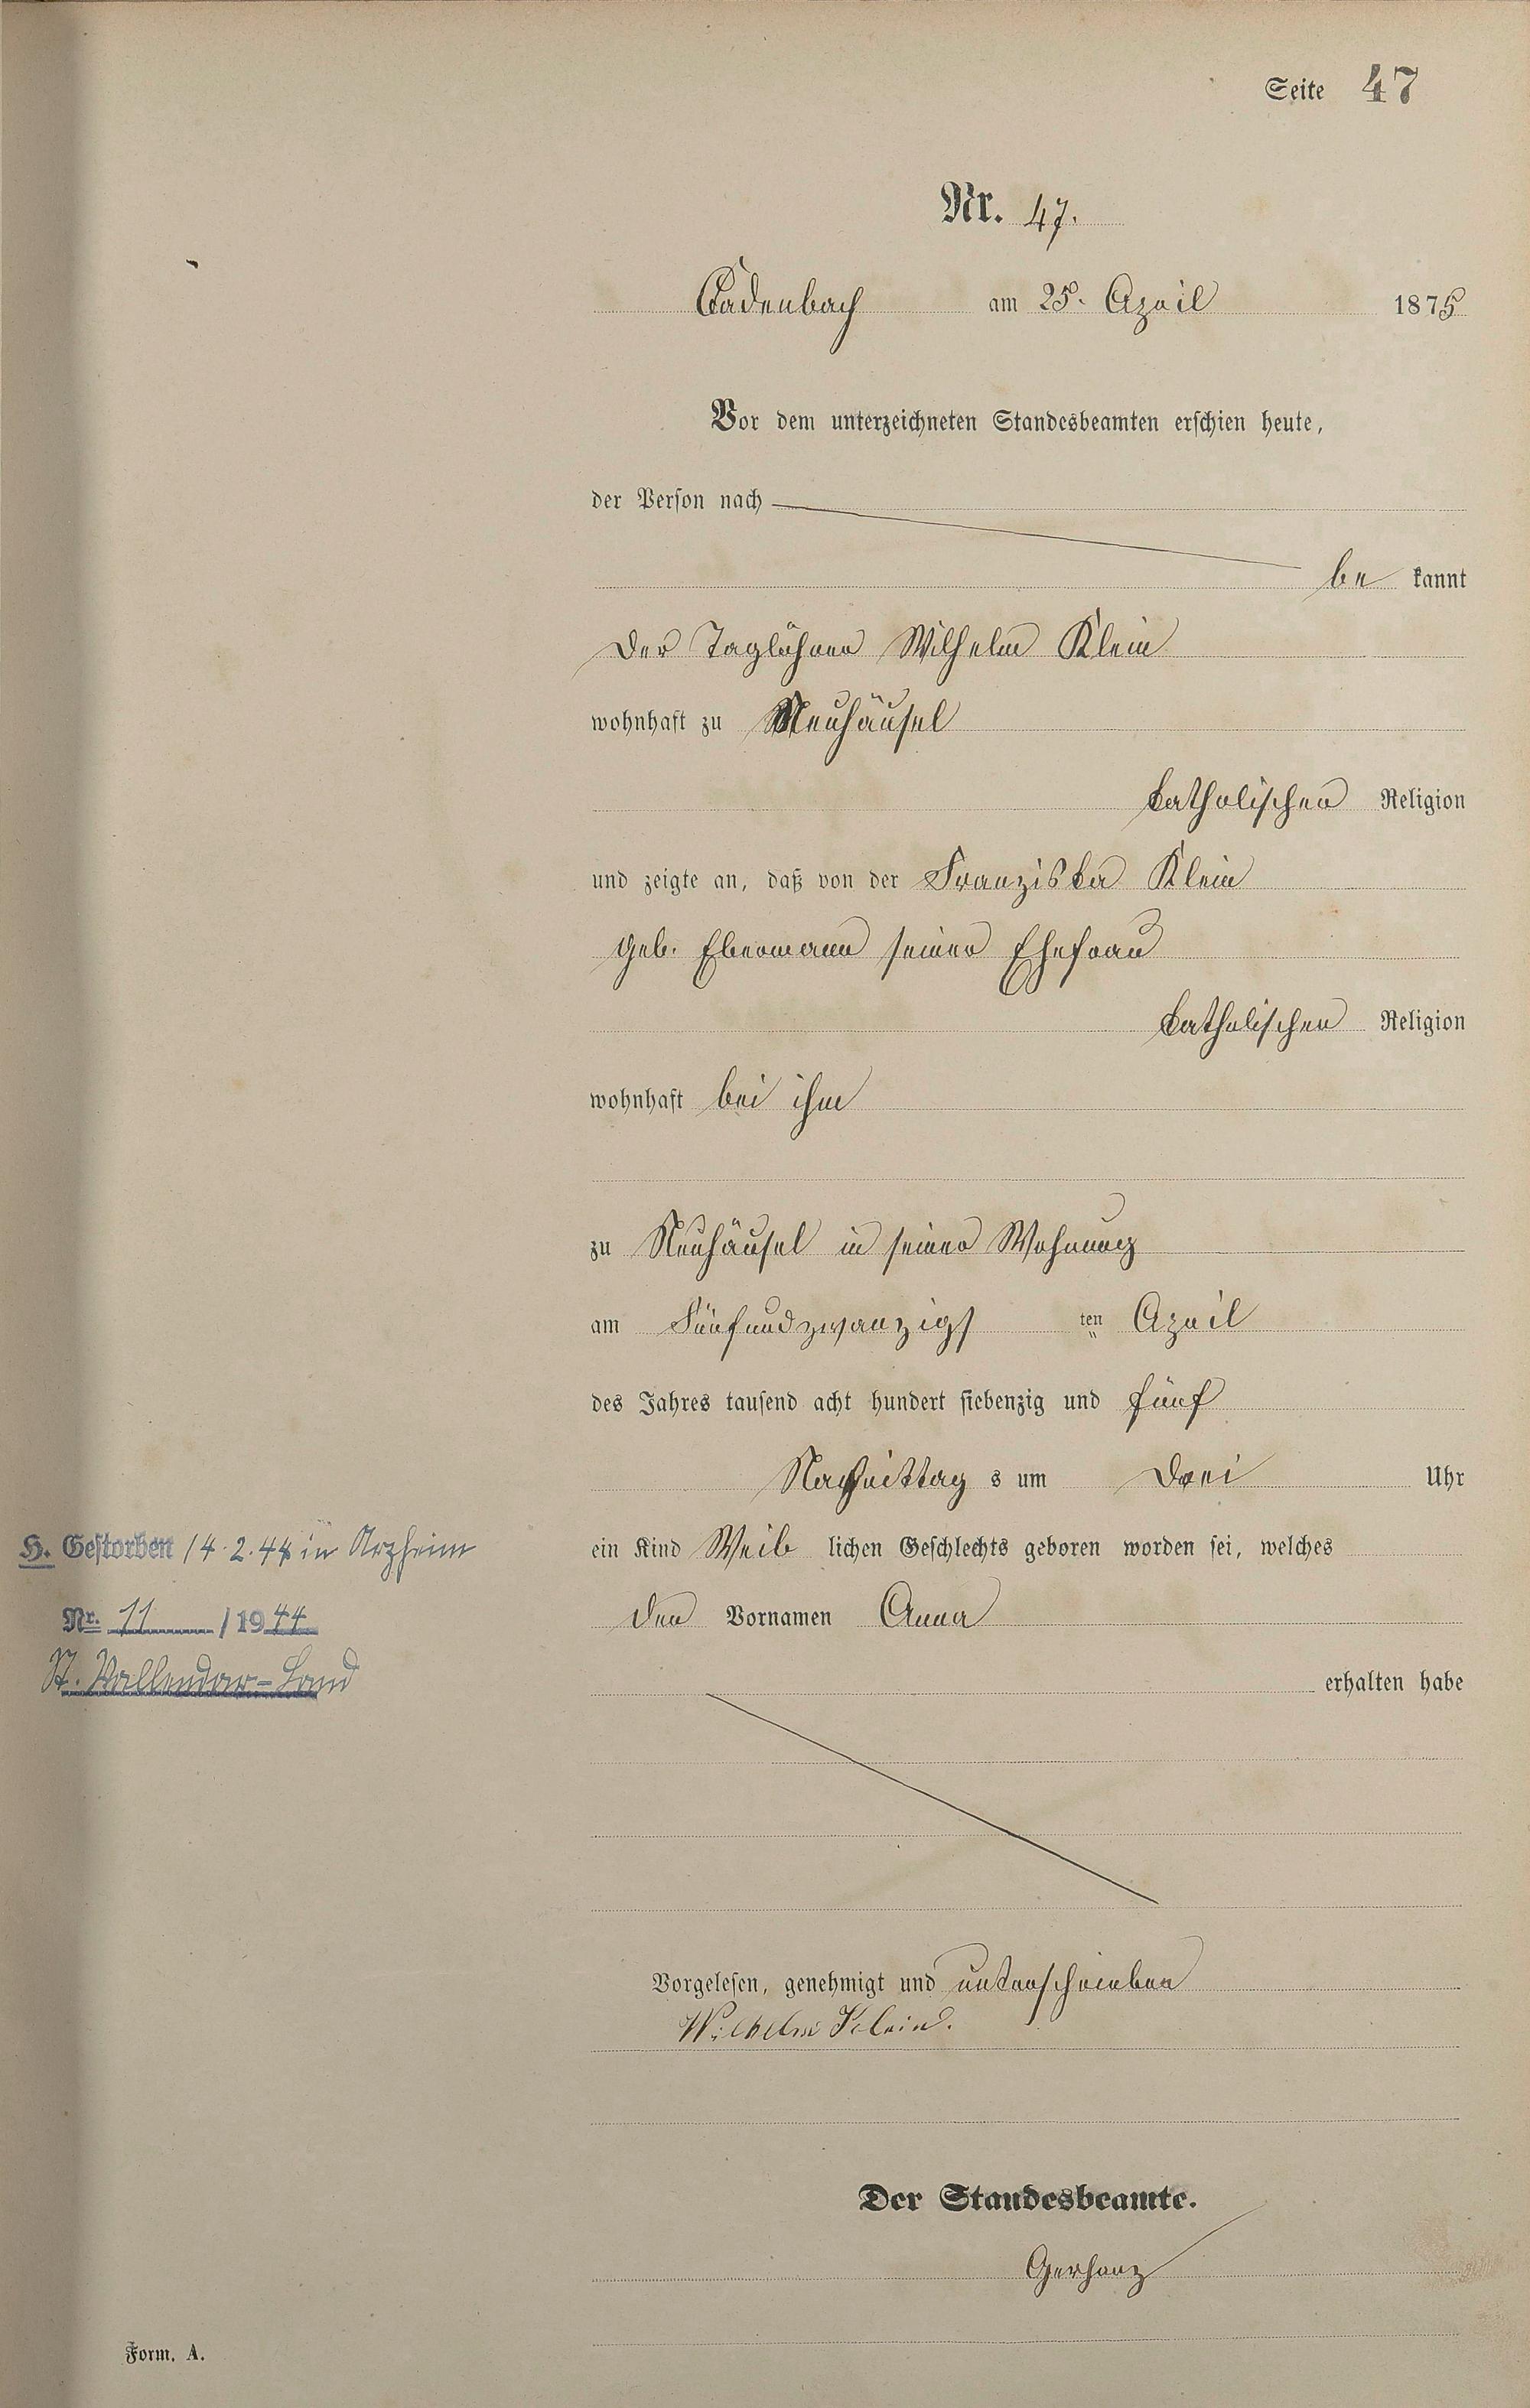 Seite 47
Nr. 47.
Cadenbach am 25. April 1875
Vor dem unterzeichneten Standesbeamten erschien heute,
der Person nach
be kannt
der Taglöhner Wilhelm Klein
wohnhaft zu Neuhäusel
katholischer Religion
und zeigte an, daß von der Franziska Klein
geb. Ebermann seiner Ehefrau
katholischer Religion
wohnhaft bei ihm
zu Neuhäusel in seiner Wohnung
am Fünfundzwanzigs ten April
des Jahres tausend acht hundert siebenzig und fünf
Nachmittag s um Drei Uhr
ein Kind Weib lichen Geschlechts geboren worden sei, welches
den Vornamen Anna
erhalten habe
H. Gestorben 14.2.44 in Arzheim
Nr. 11 / 1944
St. Vallendar-Land
Vorgelesen, genehmigt und unterschrieben
Wilhelm Klein.
Der Standesbeamte.
Gerhanz
Form. A.